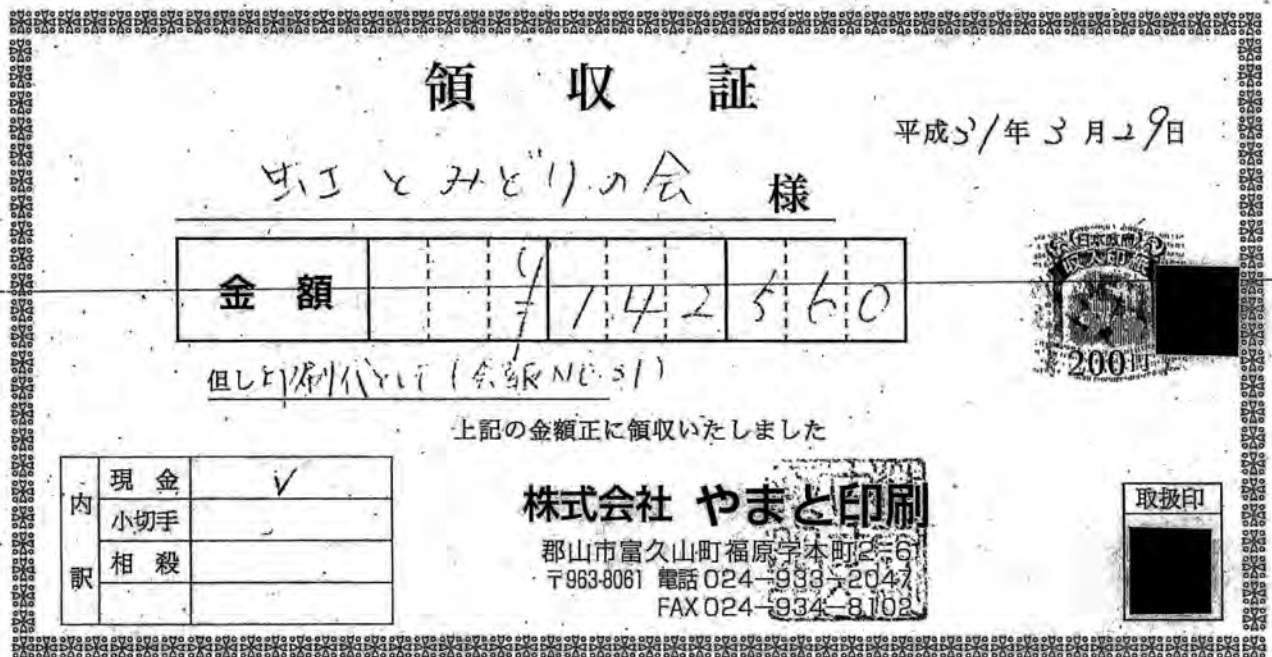 領収証
平成31年3月29日
虹とみどりの会 様
金額 ¥142560
但し印刷代として(会報NO.31)
上記の金額正に領収いたしました
日本政府
収入印紙
200円
内訳
現金 ✓
小切手
相殺
株式会社 やまと印刷
郡山市富久山町福原字本町2-6
〒963-8061 電話024-933-2047
FAX024-934-8102
取扱印